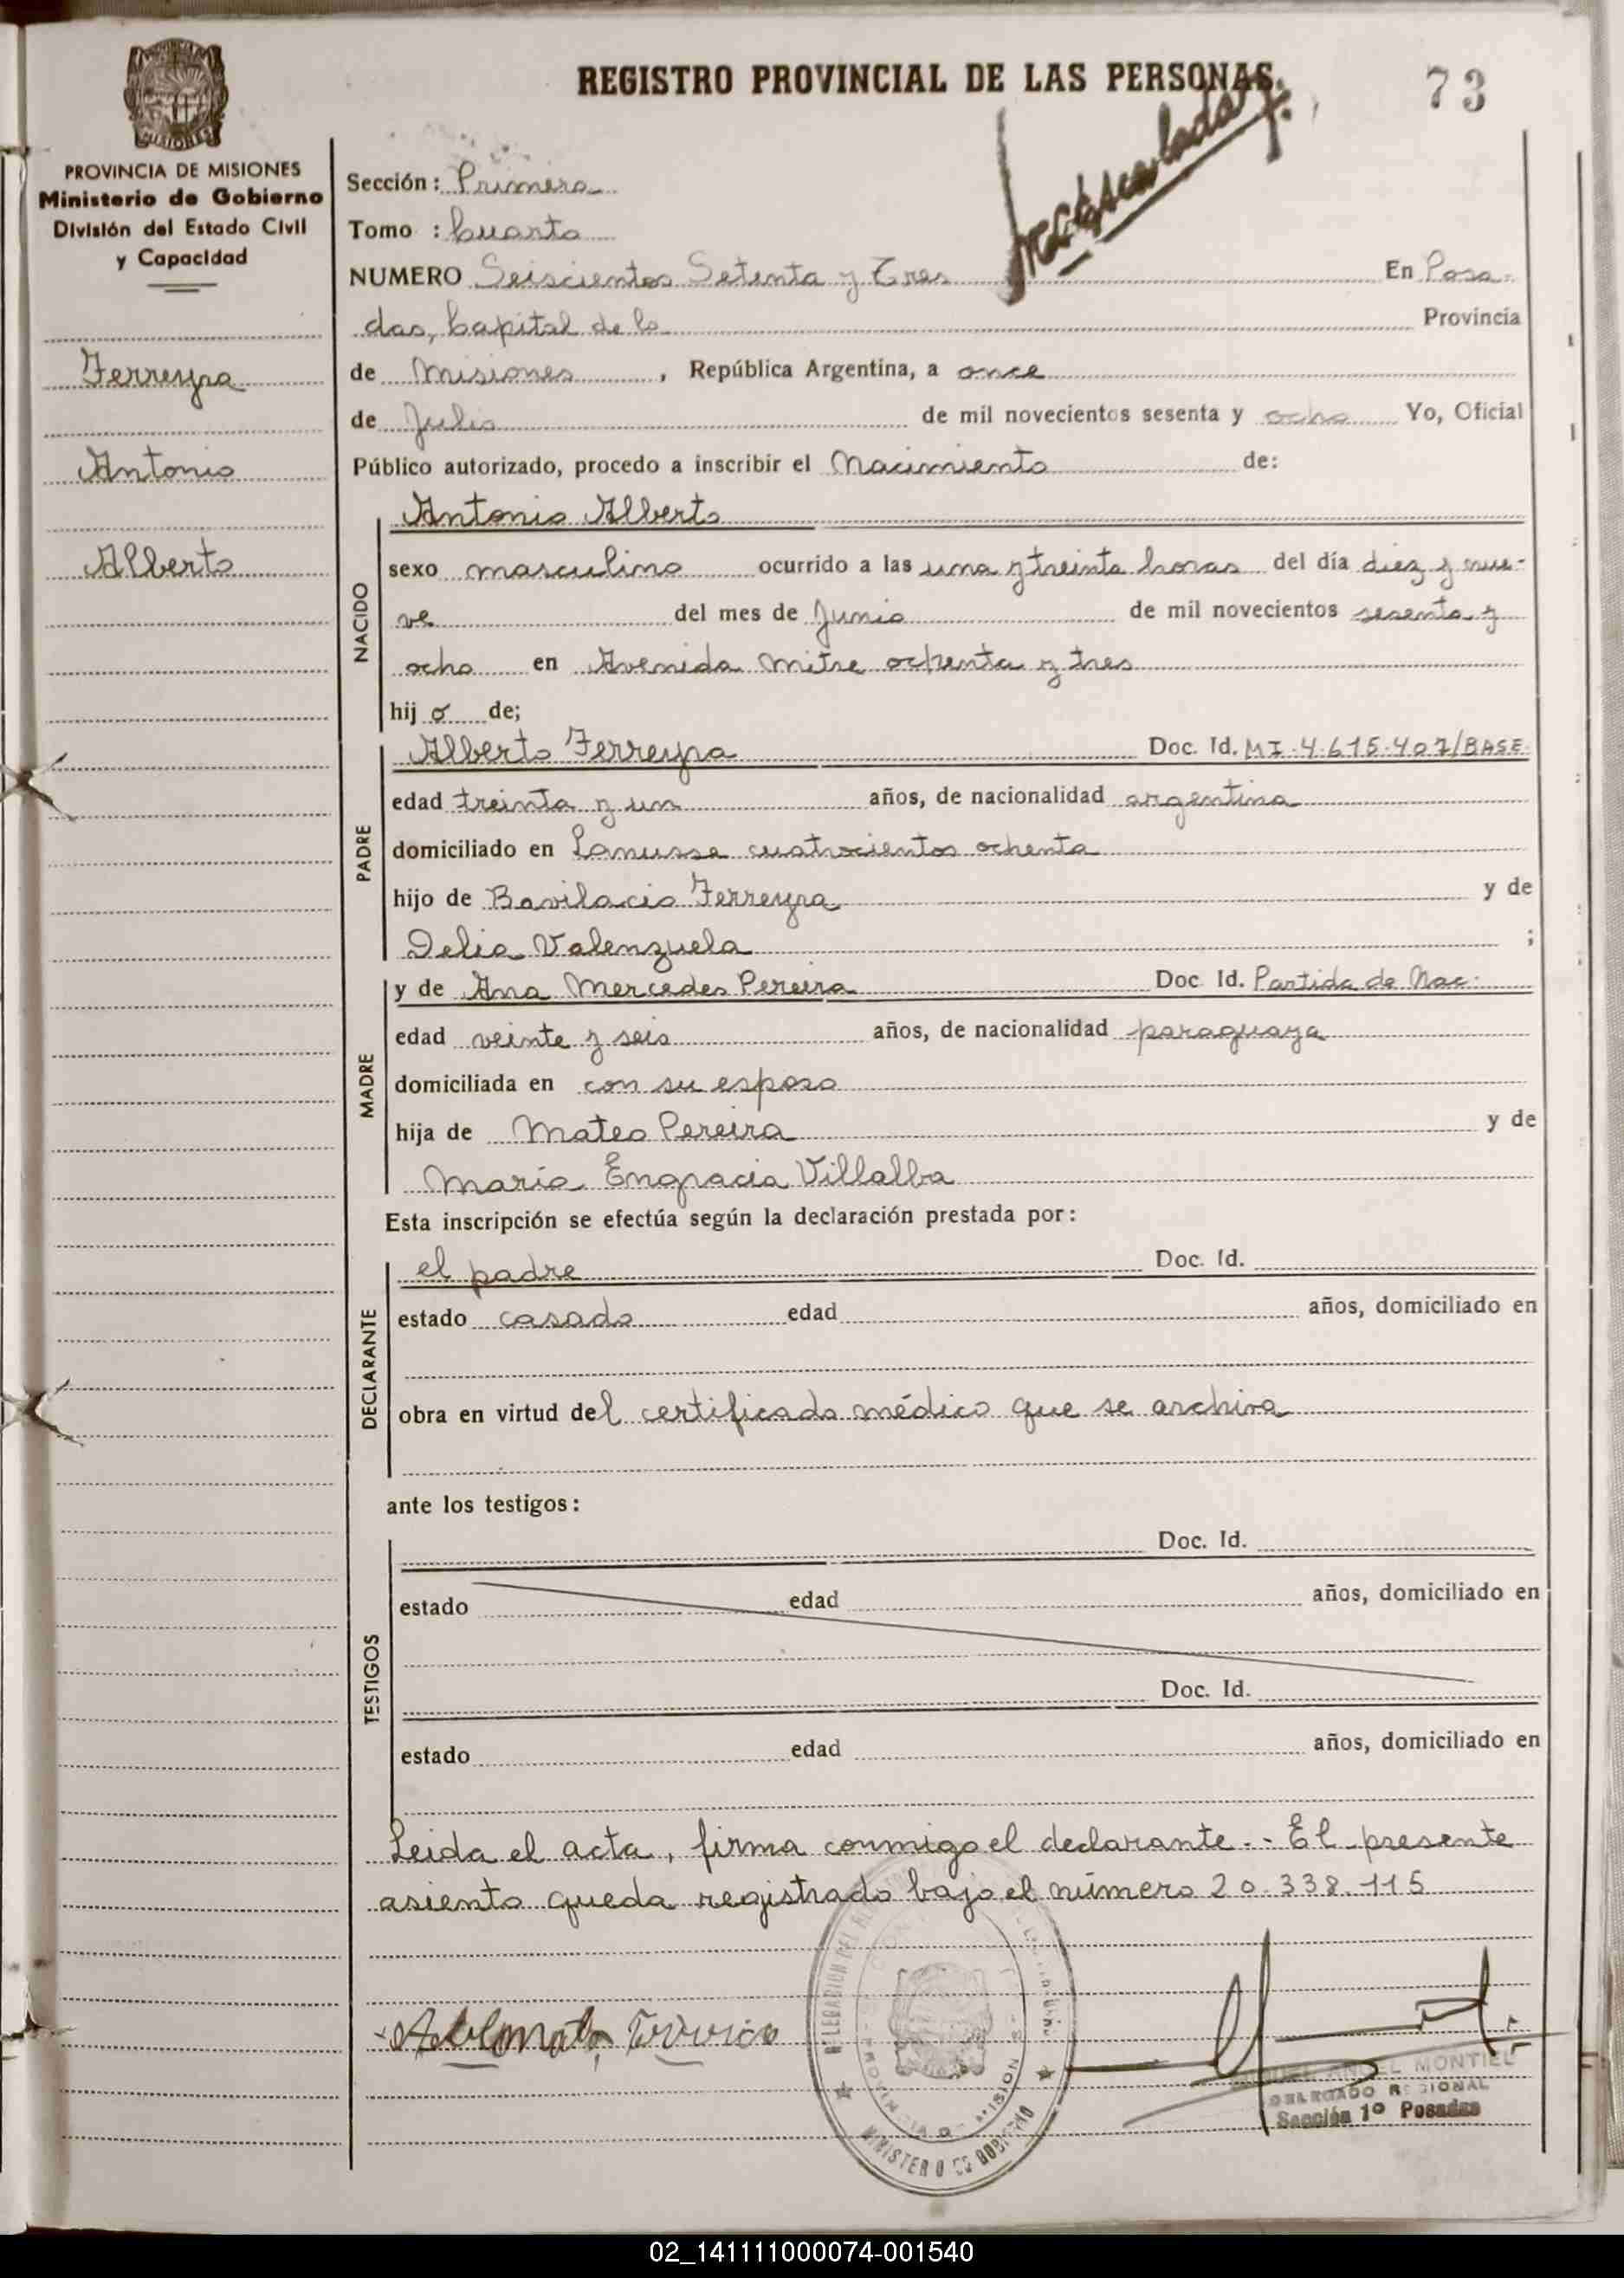 REGISTRO PROVINCIAL DE LAS PERSONAS.
73
PROVINCIA DE MISIONES
Ministerio de Gobierno
División del Estado Civil
y Capacidad
Ferreyra
Antonio
Alberto
Sección: Primera
Tomo : Cuarto
NUMERO Seiscientos Setenta y Tres En Posa-
das, Capital de la Provincia
de Misiones, República Argentina, a once
de Julio de mil novecientos sesenta y ocho Yo, Oficial
Público autorizado, procedo a inscribir el Nacimiento de:
NACIDO
Antonio Alberto
sexo masculino ocurrido a las una y treinta horas del día diez y nue-
ve del mes de Junio de mil novecientos sesenta y
ocho en Avenida Mitre ochenta y tres
hij o de;
PADRE
Alberto Ferreyra Doc. Id. MI-4.615.407/BASE-
edad treinta y un años, de nacionalidad argentina
domiciliado en Lanusse cuatrocientos ochenta
hijo de Bavilacio Ferreyra y de
Delia Valenzuela ;
MADRE
y de Ana Mercedes Pereira Doc Id. Partida de Nac-
edad veinte y seis años, de nacionalidad paraguaya
domiciliada en con su esposo
hija de Mateo Pereira y de
María Engracia Villalba
Esta inscripción se efectúa según la declaración prestada por:
DECLARANTE
el padre Doc. Id.
estado casado edad años, domiciliado en
obra en virtud del certificado médico que se archiva
ante los testigos:
TESTIGOS
Doc. Id.
estado edad años, domiciliado en
Doc. Id.
estado edad años, domiciliado en
Leida el acta, firma conmigo el declarante.- El presente
asiento queda registrado bajo el número 20.338.115
ANGEL MONTIEL
DELEGADO REGIONAL
Sección 1º Posadas
MINISTERIO DE GOBIERNO
02_141111000074-001540